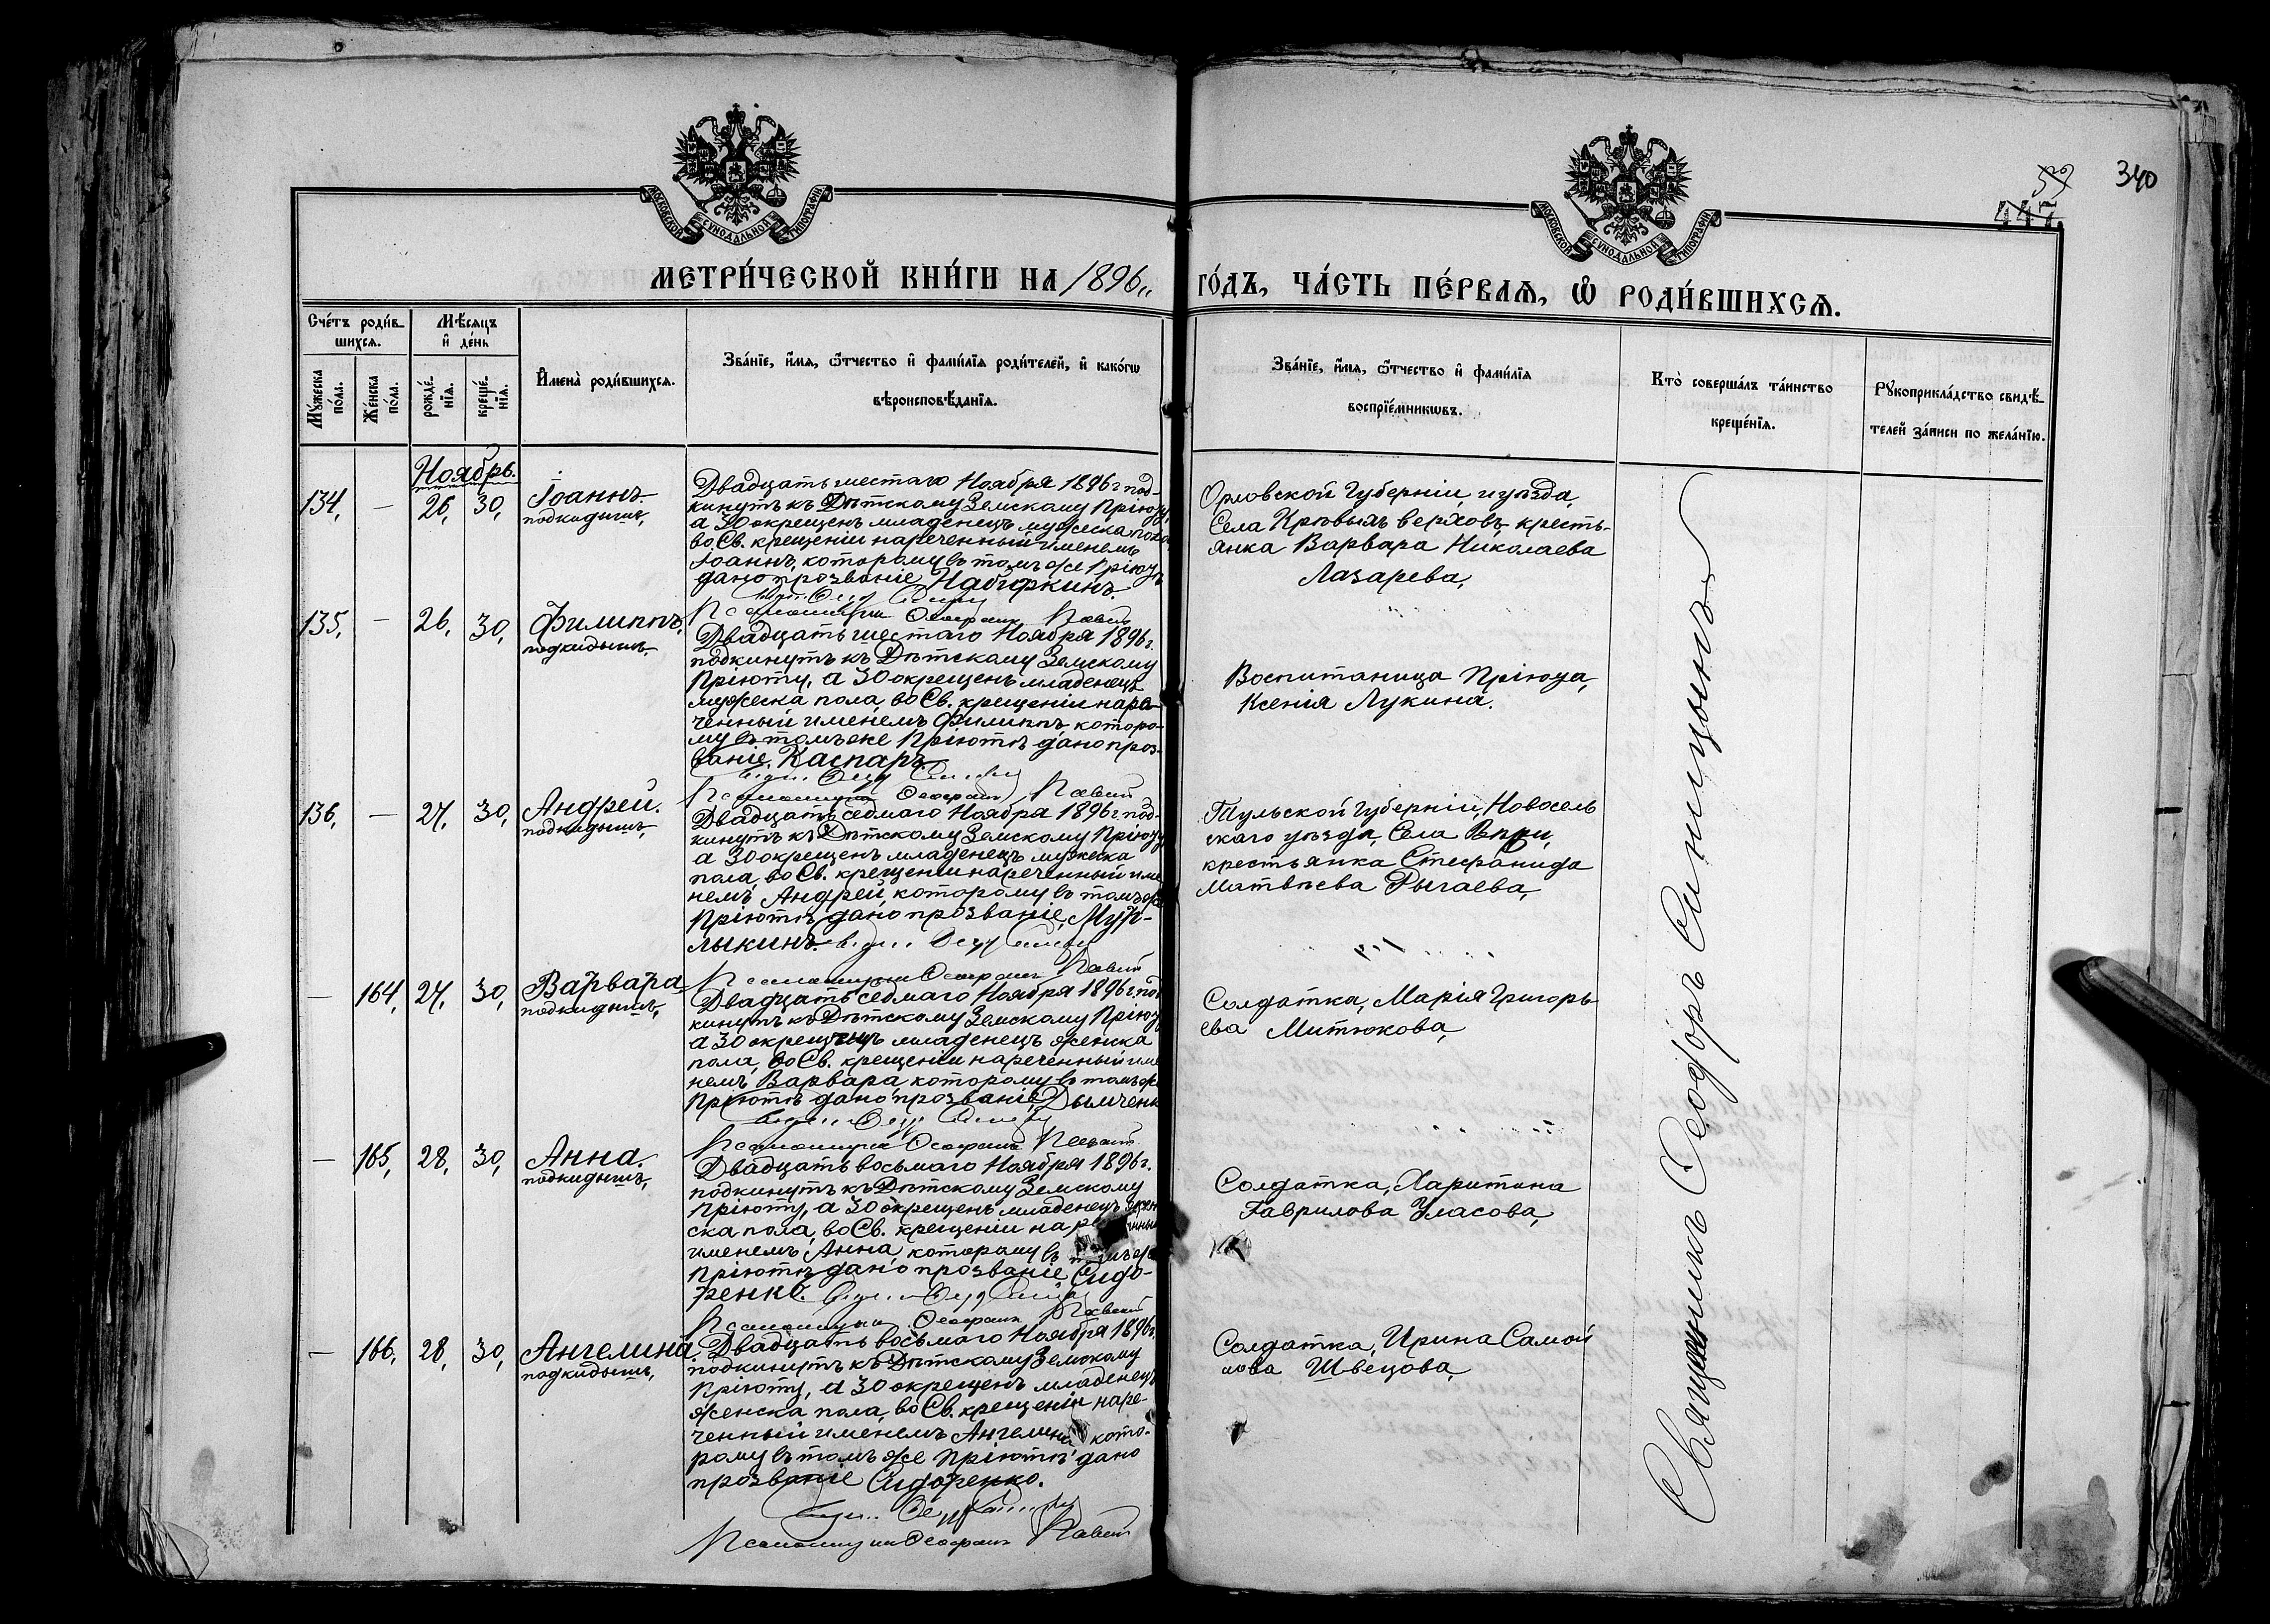 340
59
447.
МОСКОВСКОЙ СѴНОДАЛЬНОЙ ТИПОГРАФІИ
МОСКОВСКОЙ СѴНОДАЛЬНОЙ ТИПОГРАФІИ
МЕТРИ́ЧЕСКОЙ КНИ́ГИ НА 1896„ ГО́ДЪ, ЧА́СТЬ ПЕ́РВАѦ, Ѡ РОДИ́ВШИХСѦ.
Сче́тъ роди́в-
шихсѧ.
Мꙋ́жеска
по́ла.
Же́нска
по́ла.
Мѣ́сяцъ
и҆ де́нь
рожде́-
нїѧ.
креще́-
нїѧ.
И҆мена̀ роди́вшихсѧ.
Зва́нїе, и҆́мѧ, ѻ҆́тчество и҆ фами́лїѧ роди́телей, и҆ како́гѡ
вѣроисповѣ́данїѧ.
Зва́нїе, и҆́мѧ, ѻ҆́тчество и҆ фами́лїѧ
воспрїе́мникѡвъ.
Кто̀ соверша́лъ та́инство
креще́нїѧ.
Рꙋкоприкла́дство свидѣ́-
телей за́писи по жела́нїю.
Ноябрь.
134, — 26, 30, Іоаннъ
подкидышъ,
Двадцать шестаго Ноября 1896 г. под-
кинутъ къ Дѣтскому Земскому Пріюту,
а 30 окрещенъ младенецъ мужеска пола,
во Св. крещеніи нареченный именемъ
Іоаннъ, которому въ томъ же Пріютѣ
дано прозваніе
Псаломщикъ Ѳеофанъ
Орловской Губерніи, и уѣзда,
Села верховъ, кресть-
янка Варвара Николаева
Лазарева,
135, — 26, 30, Филиппъ,
подкидышъ
Двадцать шестаго Ноября 1896 г.
подкинутъ къ Дѣтскому Земскому
Пріюту, а 30 окрещенъ младенецъ
мужеска пола, во Св. крещеніи наре-
ченный именемъ Филиппъ, которо-
му въ томъ же Пріютѣ дано проз-
ваніе, Каспаръ.
Псаломщикъ Ѳеофанъ
Воспитаница Пріюта,
Ксенія Лукина.
136, — 27, 30, Андрей.
подкидышъ,
Двадцать седмаго Ноября 1896 г. под-
кинутъ къ Дѣтскому Земскому Пріюту,
а 30 окрещенъ младенецъ мужеска
пола, во Св. крещеніи нареченный име
немъ Андрей, которому въ томъ же
Пріютѣ дано прозваніе,
Псаломщикъ Ѳеофанъ
Тульской Губерніи, Новосель
скаго уѣзда, Села
крестьянка Стефанида
Матвѣева Рыгаева,
— 164, 27, 30, Варвара
подкидышъ,
Двадцать седмаго Ноября 1896 г. под
кинутъ къ Дѣтскому Земскому Пріюту
а 30 окрещенъ младенецъ женска
пола, во Св. крещеніи нареченный име
немъ Варвара, которому въ томъ же
Пріютѣ дано прозваніе,
Псаломщикъ Ѳеофанъ
Солдатка, Марія Григорь-
ева Митюкова,
— 165, 28, 30, Анна.
подкидышъ,
Двадцать восьмаго Ноября 1896 г.
подкинутъ къ Дѣтскому Земскому
Пріюту, а 30 окрещенъ младенецъ жен
ска пола, во Св. крещеніи
именемъ Анна, которому въ томъ же
Пріютѣ дано прозваніе Сидо-
ренко.
Псаломщикъ Ѳеофанъ
Солдатка, Харитина
Гаврилова Уласова,
— 166, 28, 30, Ангелина
подкидышъ,
Двадцать восьмаго Ноября 1896 г.
подкинутъ къ Дѣтскому Земскому
Пріюту, а 30 окрещенъ младенецъ
женска пола, во Св. крещеніи наре-
ченный именемъ Ангелина, кото-
рому въ томъ же Пріютѣ дано
прозваніе Сидоренко.
Псаломщикъ Ѳеофанъ
Солдатка, Ирина Самой
лова Швецова,
Священникъ Ѳеодоръ Синицынъ